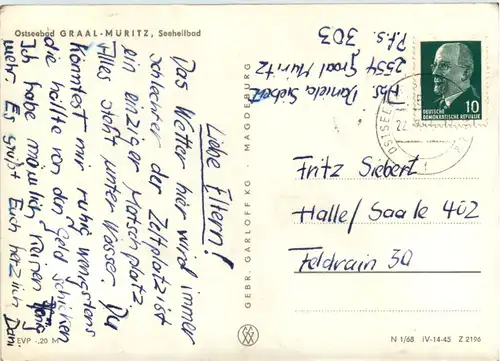 Ostseebad GRAAL-MÜRITZ, Seeheilbad
Liebe Eltern!
Das Wetter hier wird immer
schlechter der Zeltplatz ist
ein einziger Matschplatz
Alles steht unter Wasser. Du
könntest mir ruhig wengstens
die hälfte von den Geld schicken
Ich habe nämlich keinen
mehr. Es grüßt Euch herzlich Dani
EVP -,20 M
GEBR. GARLOFF KG · MAGDEBURG
Abs. Daniela Siebert
2554 Graal Müritz
P.f.s. 303
DEUTSCHE
DEMOKRATISCHE REPUBLIK
10
OSTSEE
22
Fritz Siebert
Halle/Saale 402
Feldrain 30
N 1/68 IV-14-45 Z 2196